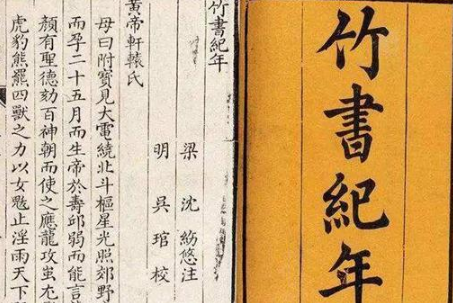 竹書紀年
竹書紀年
梁 沈約附注
明 吳琯校
黃帝軒轅氏
母曰附寶見大電繞北斗樞星光照郊野
而孕二十五月而生帝於壽邱弱而能言
顏有聖德劾百神朝而使之應龍攻蚩尤
虎豹熊羆四獸之力以女魃止淫雨天下